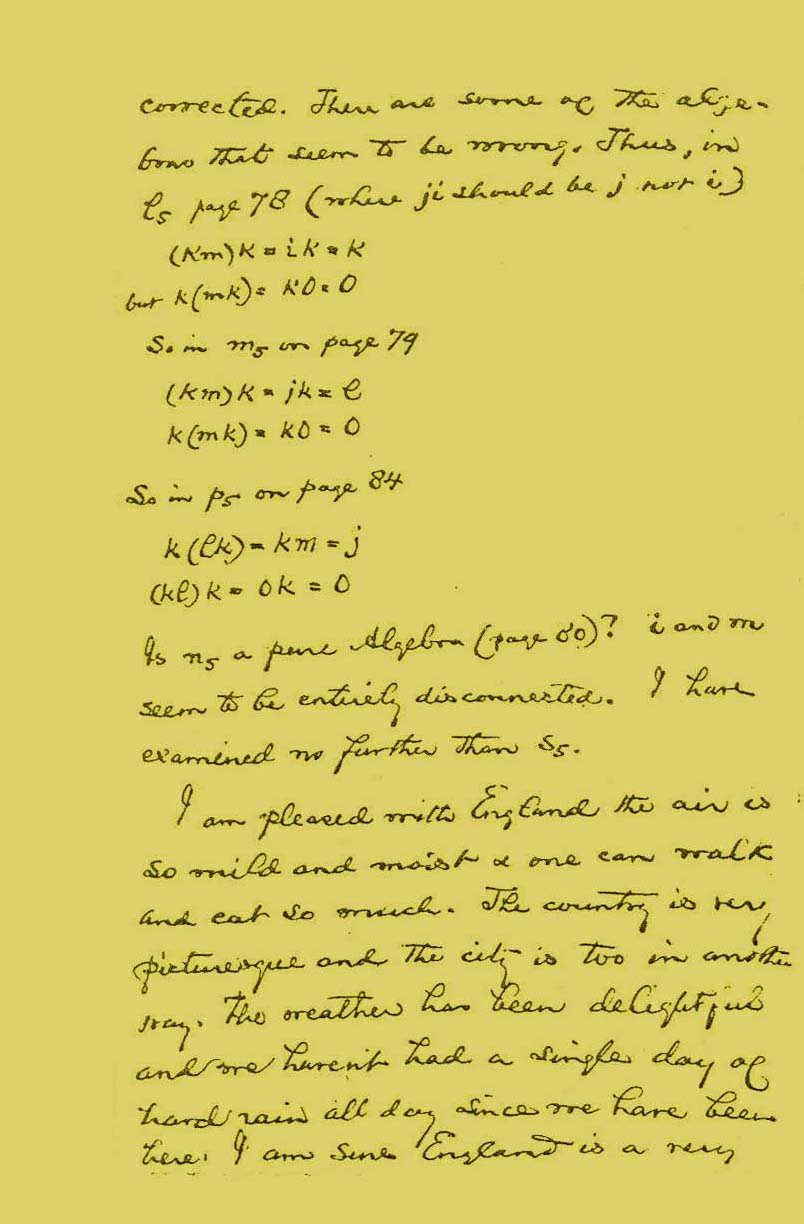 corrected. There are some of the alge-
bras that seem to be wrong. Thus, in
l₅ page 78 (where ji should be j not i)
(km)k = ik = k
but k(mk) = k0 = 0
So in m₅ on page 79
(km)k = jk = l
k(mk) = k0 = 0
So in p₅ on page 84
k(lk) = km = j
(kl)k = 0k = 0
Is n₅ a pure Algebra (page 80)? i and m
seem to be entirely disconnected. I have
examined no further than s₅.
I am pleased with England the air is
so mild and moist & one can walk
and eat so much. The country is very
picturesque and the city is too in another
way. The weather has been delightful
and we havent had a single day of
hard rain all day since we have been
here. I am sure England is a very